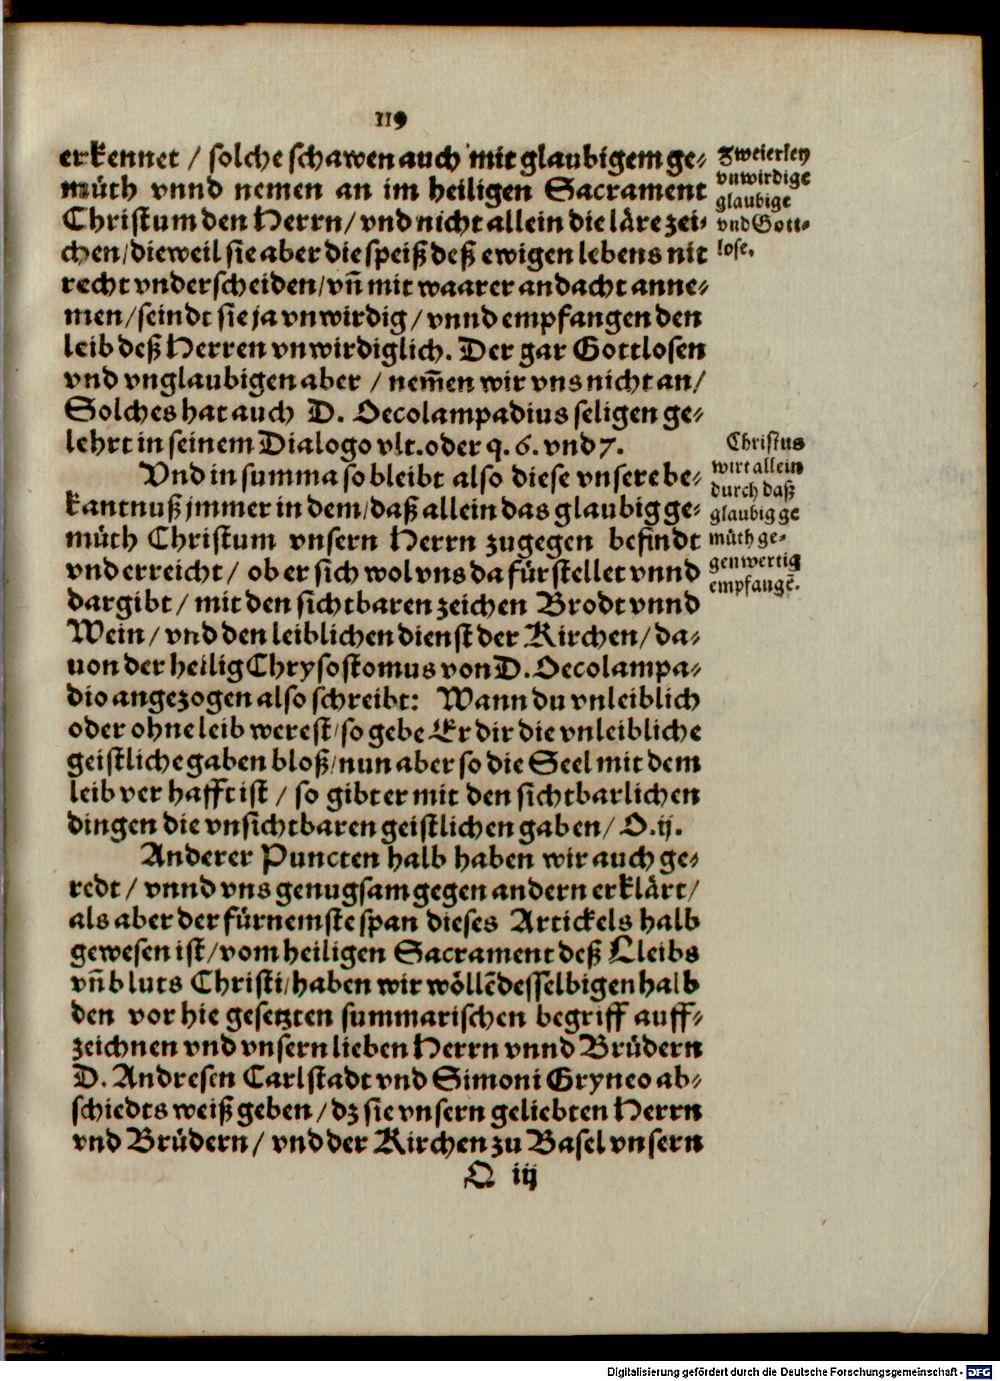 119
erkennet / solche schawen auch mit glaubigem ge-
müth vnnd nemen an im heiligen Sacrament
Christum den Herrn / vnd nicht allein die läre zei-
chen / dieweil sie aber die speiß deß ewigen lebens nit
recht vnderscheiden / vn̄ mit waarer andacht anne-
men / seindt sie ja vnwirdig / vnnd empfangen den
leib deß Herren vnwirdiglich. Der gar Gottlosen
vnd vnglaubigen aber / nem̄en wir vns nicht an /
Solches hat auch D. Oecolampadius seligen ge-
lehrt in seinem Dialogo vlt. oder q. 6. vnd 7.
Vnd in summa so bleibt also diese vnsere be-
kantnuß jmmer in dem / daß allein das glaubig ge-
müth Christum vnsern Herrn zugegen befindt
vnd erreicht / ob er sich wol vns da fürstellet vnnd
dargibt / mit den sichtbaren zeichen Brodt vnnd
Wein / vnd den leiblichen dienst der Kirchen / da-
uon der heilig Chrysostomus von D. Oecolampa-
dio angezogen also schreibt: Wann du vnleiblich
oder ohne leib werest / so gebe Er dir die vnleibliche
geistliche gaben bloß / nun aber so die Seel mit dem
leib verhafft ist / so gibt er mit den sichtbarlichen
dingen die vnsichtbaren geistlichen gaben / O. ij.
Anderer Puncten halb haben wir auch ge-
redt / vnnd vns genugsam gegen andern erklärt /
als aber der fürnemste span dieses Artickels halb
gewesen ist / vom heiligen Sacrament deß Lleibs
vn̄ bluts Christi / haben wir wöllē desselbigen halb
den vor hie gesetzten summarischen begriff auff-
zeichnen vnd vnsern lieben Herrn vnnd Brüdern
D. Andresen Carlstadt vnd Simoni Gryneo ab-
schiedts weiß geben / dz sie vnsern geliebten Herrn
vnd Brüdern / vnd der Kirchen zu Basel vnsern
O iij
Zweierley
vnwirdige
glaubige
vnd Gott-
lose.
Christus
wirt allein
durch daß
glaubig ge
müth ge-
genwertig
empfangē.
Digitalisierung gefördert durch die Deutsche Forschungsgemeinschaft - DFG